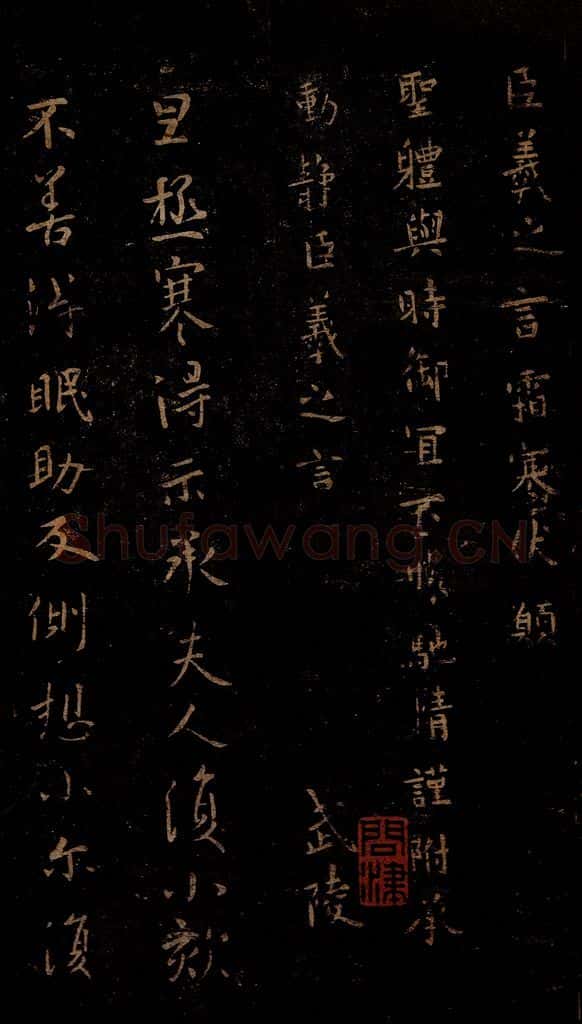 臣羲之言霜寒伏願
聖體與時御宜不勝馳情謹附承
動靜臣羲之言
武陵
旦極寒得示承夫人復小欬
不善得眠助反側想小尔復
問津
Shufawang.CN